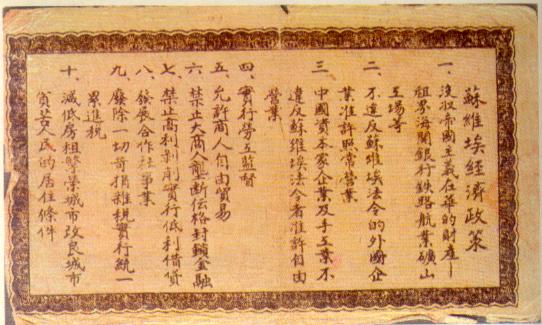 蘇維埃經濟政策
一、沒收帝國主義在華的財產—
租界海關銀行鉄路航業礦山
工場等
二、不違反蘇維埃法令的外國企
業准許照常營業
三、中國資本家企業及手工業不
違反蘇維埃法令者准許自由
營業
四、實行勞工監督
五、允許商人自由貿易
六、禁止大商人壟断价格封鎖金融
七、禁止高利剥削實行低利借貸
八、發展合作社事業
九、廢除一切苛捐雜稅實行統一
累進稅
十、減低房租繁榮城市改良城市
貧苦人民的居住條件